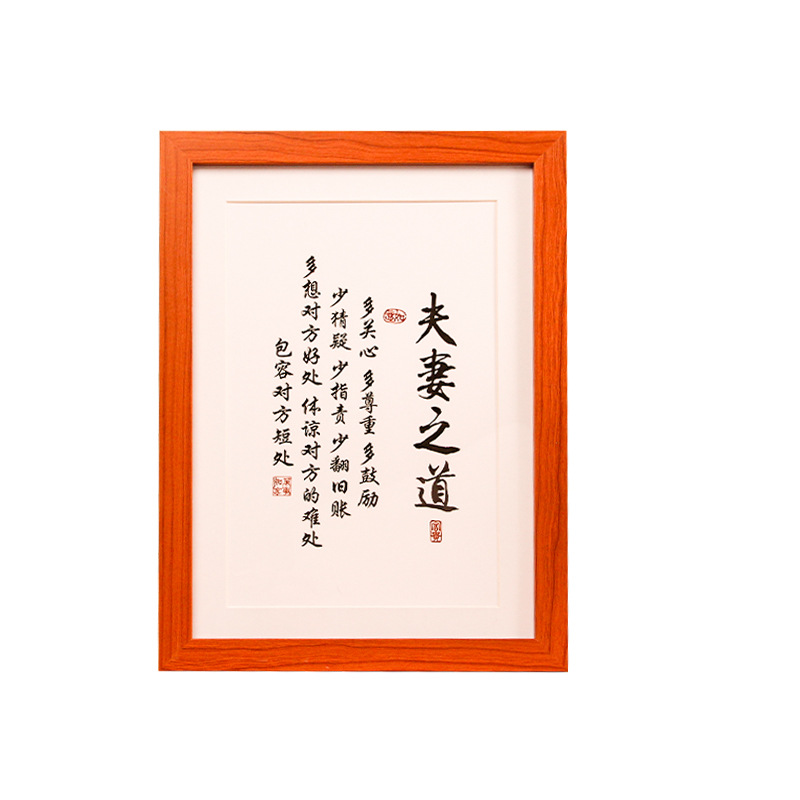 夫妻之道
多关心 多尊重 多鼓励
少猜疑 少指责 少翻旧账
多想对方好处 体谅对方的难处
包容对方短处